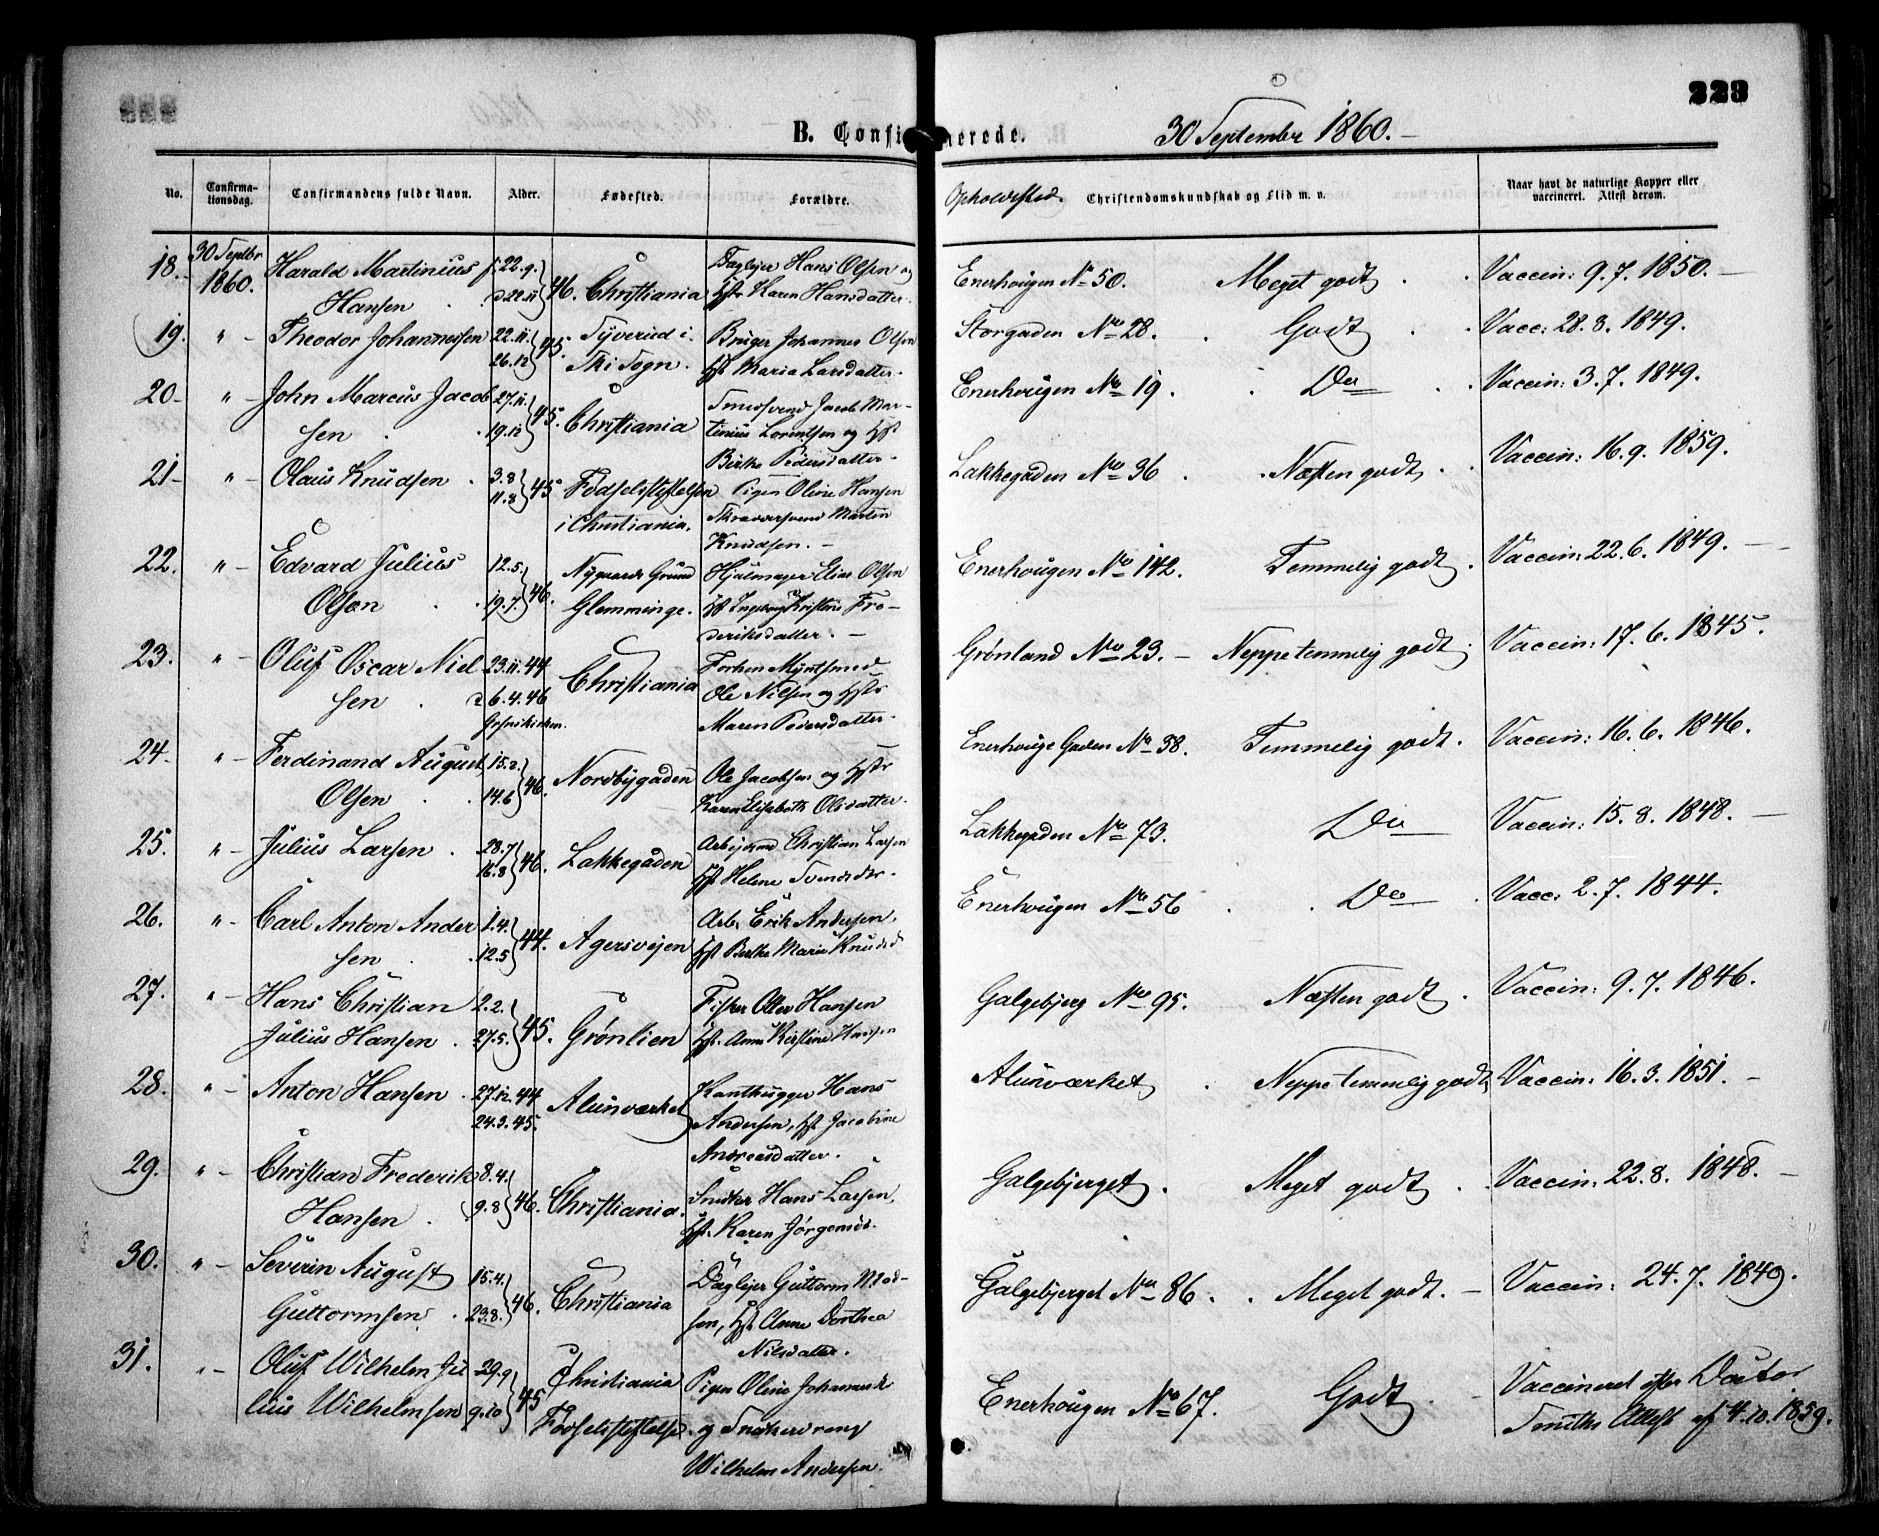 223
B. Confirmerede. 30 September 1860.-
No. Confirmationsdag. Confirmandens fulde Navn. Alder. Fødested. Forældre. Opholdssted. Christendomskundskab og Flid m. v. Naar havt de naturlige Kopper eller vaccineret. Attest derom.
18. 30 Septbr Harald Martinius f. 22.9. Daglejer Hans Olsen og
1860. Hansen d 22.11 } 46. Christiania Hstr Karen Hansdatter. Enerhougen No 50. Meget godt. Vaccin: 9.7. 1850.-
19. " - Theodor Johannesen 22.11. } 45. Tyverud i Bruger Johannes Olsen Storgaden No 28. Godt Vacc: 28.8. 1849.
26.12 Ski Sogn. Hst Maria Larsdatter.
20- " - John Marcus Jacob 27.11. } 45. Christiania Smedsvend Jacob Mar- Enerhougen No 19. Do Vaccin: 3.7. 1849.
sen 19.12 tinius Lorentsen og Hst
Birthe Pedersdatter.
21- " - Olaus Knudsen 3.8 } 45 Fødselsstiftelsen Pigen Oline Hansen Lakkegaden No 36. Næsten godt. Vaccin: 16.9. 1859.
11.8 i Christiania. Skræddersvend Martin
Knudsen.-
22. " - Edvard Julius 12.5. } 46. Nygaards Grund Hjulmager Elias Olsen Enerhougen No 142. Temmelig godt. Vaccin: 22.6. 1849.-
Olsen 19.7. Glemminge. Hst Ingeborg Kristine Fre-
deriksdatter.-
23. " - Oluf Oscar Niel 23.11.44 Christiania Grønland No 23.- Neppe temmelig godt. Vaccin: 17.6. 1845.
sen d 6.4.46 Ole Nilsen og Hstr
Maren Pedersdatter.
24. " - Ferdinand August 15.2. } 46. Nordbygaden Ole Jacobsen og Hstr Enerhouge Gaden No 38. Temmelig godt. Vaccin: 16.6. 1846.
Olsen 14.6 Karen Elisabeth Olsdatter.
25. " - Julius Larsen 28.7 } 46. Lakkegaden Arbejdsmd Christian Larsen Lakkegaden No 73. Do Vaccin: 15.8. 1848.-
16.8 Hst Helene Svendsdtr.
26. " - Carl Anton Ander 1.4. } 44. Agersvejen Arb. Erik Andersen, Enerhougen No 56 Do Vacc: 2.7. 1844.
sen 12.5 Hst Berthe Marie Knudsd
27. " - Hans Christian 2.2. } 45. Grønlien Fisker Olves Hansen Galgebjerg No 95. Næsten godt. Vaccin: 9.7. 1846.
Julius Hansen 27.5. Hst. Anne Kirstine Hansen
28. " - Anton Hansen 27.12.44 Alunværket Kanthugger Hans Alunværket Neppe temmelig godt Vaccin: 16.3. 1851.-
24.3.45. Andersen, Hst Jacobine
Andreasdatter.
29. " - Christian Frederik 8.4. } 46. Christiania. Snedker Hans Larsen, Galgebjerget. Meget godt. Vaccin: 22.8. 1848.-
Hansen 9.8 Hst. Karen Jørgensd.
30. " - Severin August 15.4. } 46. Christiania Daglejer Guttorm Mad- Galgebjerget No 86. Meget godt.- Vaccin: 24.7. 1849.
Guttormsen 23.8. sen, Hst. Anne Dorthea
Nilsdatter.
31. " - Oluf Wilhelm Ju 29.9 } 45 Christiania Pigen Oline Johannesd. Enerhougen No 67. Godt Vaccineret efter Doctor
lius Wilhelmsen 9.10 Fødselsstiftelse. og Snedkerdreng Smiths Attest af 4.10.1859.
Wilhelm Andersen.